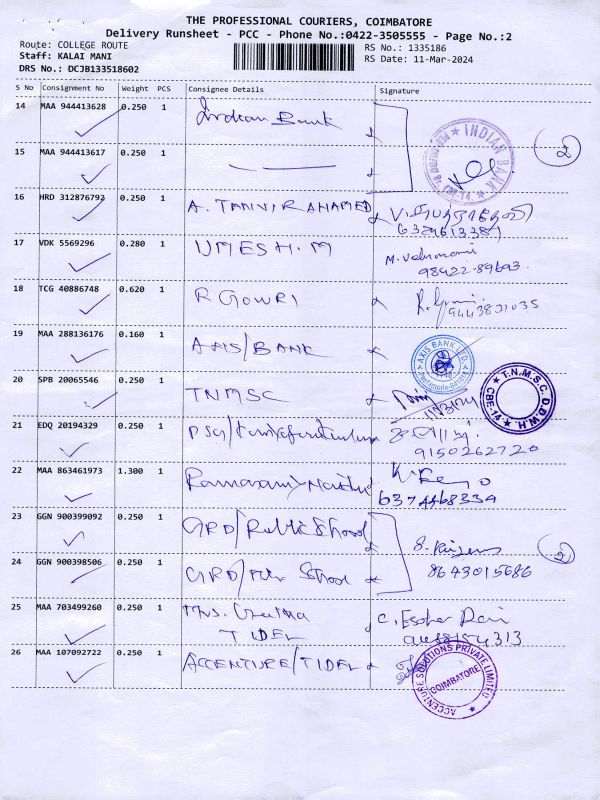 THE PROFESSIONAL COURIERS, COIMBATORE
Delivery Runsheet - PCC - Phone No.:0422-3505555 - Page No.:2
Route: COLLEGE ROUTE RS No.: 1335186
Staff: KALAI MANI RS Date: 11-Mar-2024
DRS No.: DCJB133518602
S No Consignment No Weight PCS Consignee Details Signature
14 MAA 944413628 0.250 1 Indian Bank
2
INDIAN BANK
15 MAA 944413617 0.250 1
16 HRD 312876792 0.250 1 A. TANVIR AHAMED
17 VDK 5569296 0.280 1 UMESH.M
98422-89693
18 TCG 40886748 0.620 1 R GOWRI
9443831035
19 MAA 288136176 0.160 1 AXIS/BANK
AXIS BANK LTD.
20 SPB 20065546 0.250 1 TNMSC
T.N.M.S.C. D.D.W.H. CBE-14
21 EDQ 20194329 0.250 1
9150262720
22 MAA 863461973 1.300 1
6374468339
23 GGN 900399092 0.250 1 GRD/Public School
24 GGN 900398506 0.250 1 GRD/ School
8643015686
2
25 MAA 703499260 0.250 1
TIDEL
26 MAA 107092722 0.250 1 ACCENTURE/TIDEL
ACCENTURE SOLUTIONS PRIVATE LIMITED
COIMBATORE